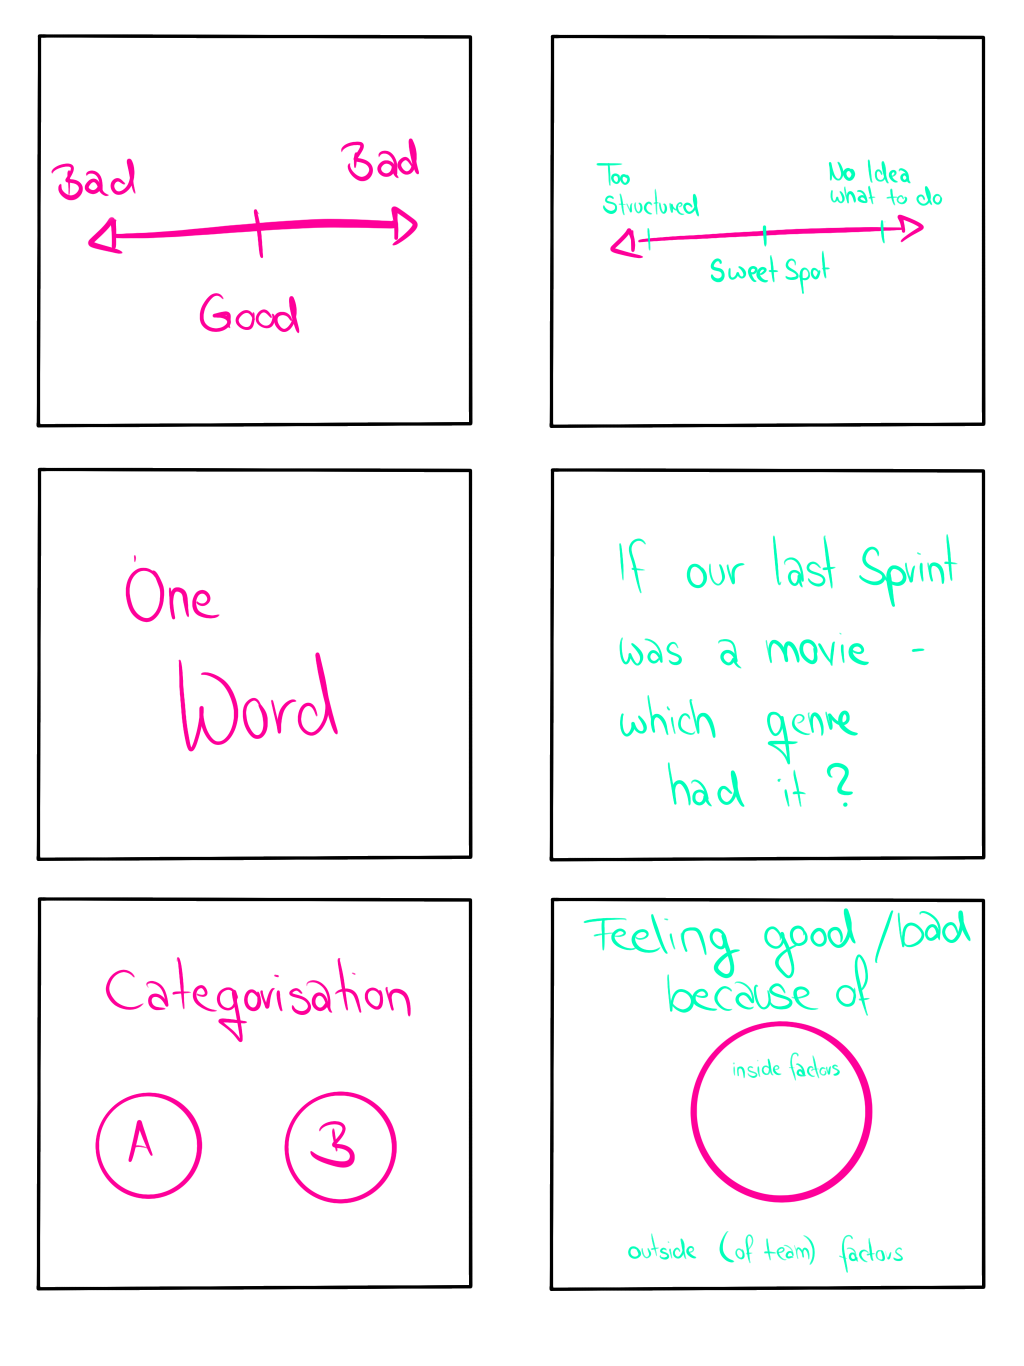 Bad
Bad
Good
Too
Structured
No Idea
what to do
Sweet Spot
One
Word
If our last Sprint
was a movie -
which genre
had it?
Categorisation
A
B
Feeling good/bad
because of
inside factors
outside (of team) factors